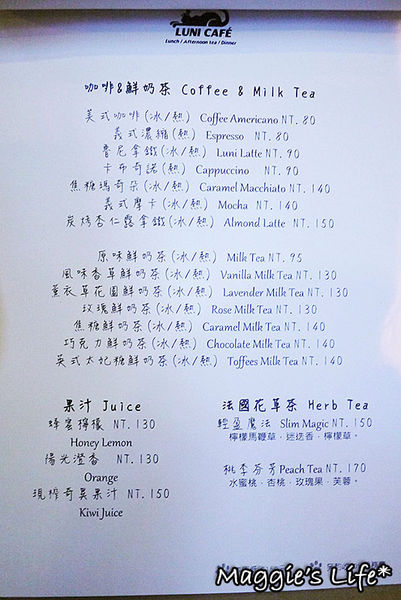 LUNI CAFÉ
Lunch / Afternoon tea / Dinner
咖啡&鮮奶茶 Coffee & Milk Tea
美式咖啡(冰/熱) Coffee Americano NT. 80
義式濃縮(熱) Espresso NT. 80
魯尼拿鐵(冰/熱) Luni Latte NT. 90
卡布奇諾(熱) Cappuccino NT. 90
焦糖瑪奇朵(冰/熱) Caramel Macchiato NT. 140
義式摩卡(冰/熱) Mocha NT. 140
炭烤杏仁露拿鐵(冰/熱) Almond Latte NT. 150
原味鮮奶茶(冰/熱) Milk Tea NT. 95
風味香草鮮奶茶(冰/熱) Vanilla Milk Tea NT. 130
薰衣草花園鮮奶茶(冰/熱) Lavender Milk Tea NT. 130
玫瑰鮮奶茶(冰/熱) Rose Milk Tea NT. 130
焦糖鮮奶茶(冰/熱) Caramel Milk Tea NT. 140
巧克力鮮奶茶(冰/熱) Chocolate Milk Tea NT. 140
英式太妃糖鮮奶茶(冰/熱) Toffees Milk Tea NT. 140
果汁 Juice
蜂蜜檸檬 NT. 130
Honey Lemon
陽光澄香 NT. 130
Orange
現榨奇異果汁 NT. 150
Kiwi Juice
法國花草茶 Herb Tea
輕盈魔法 Slim Magic NT. 150
檸檬馬鞭草，迷迭香，檸檬草。
桃李芬芳 Peach Tea NT. 170
水蜜桃，杏桃，玫瑰果，芙蓉。
Maggie's Life*